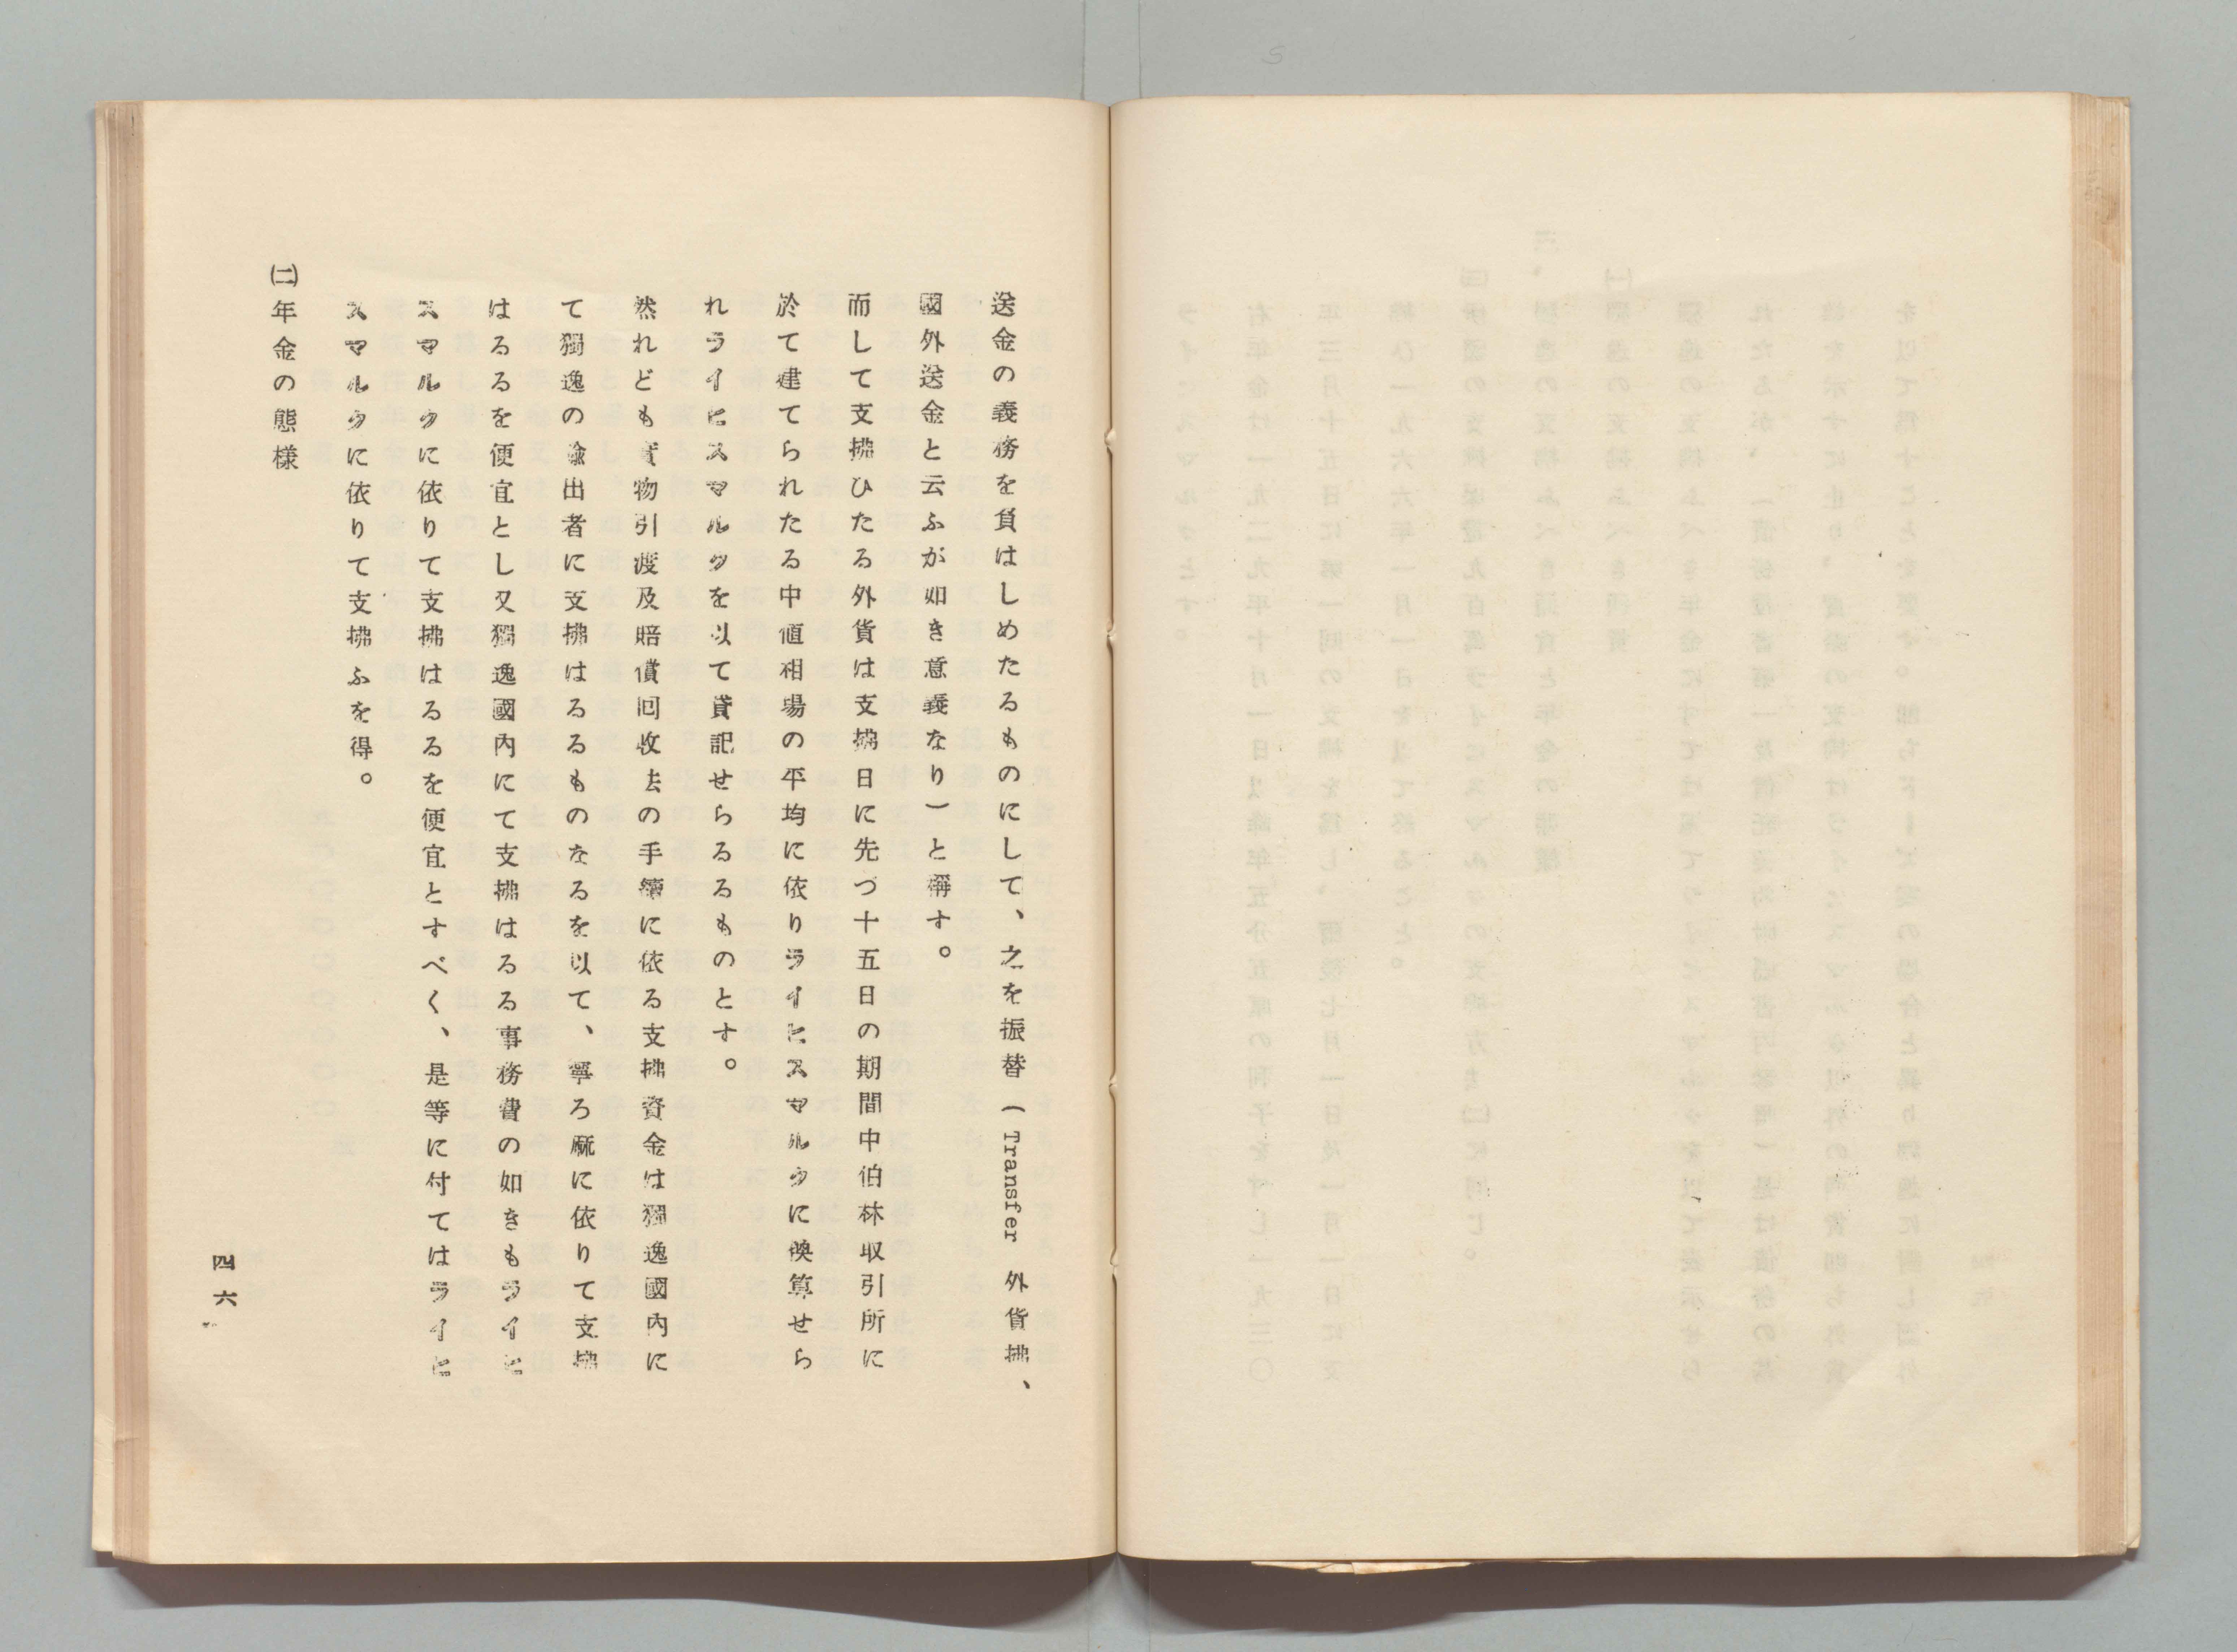 送金の義務を負はしめたるものにして、之を振替(Transfer 外貨拂、
國外送金と云ふが如き意義なり)と稱す。
而して支拂ひたる外貨は支拂日に先づ十五日の期間中伯林取引所に
於て建てられたる中値相場の平均に依りライヒスマルクに換算せら
れライヒスマルクを以て貸記せらるるものとす。
然れども實物引渡及賠償回收法の手續に依る支拂資金は獨逸國內に
て獨逸の輸出者に支拂はるるものなるを以て、寧ろ麻に依りて支拂
はるるを便宜とし又獨逸國內にて支拂はるる事務費の如きもライヒ
スマルクに依りて支拂はるるを便宜とすべく、是等に付てはライヒ
スマルクに依りて支拂ふを得。
㈡年金の態樣
四六